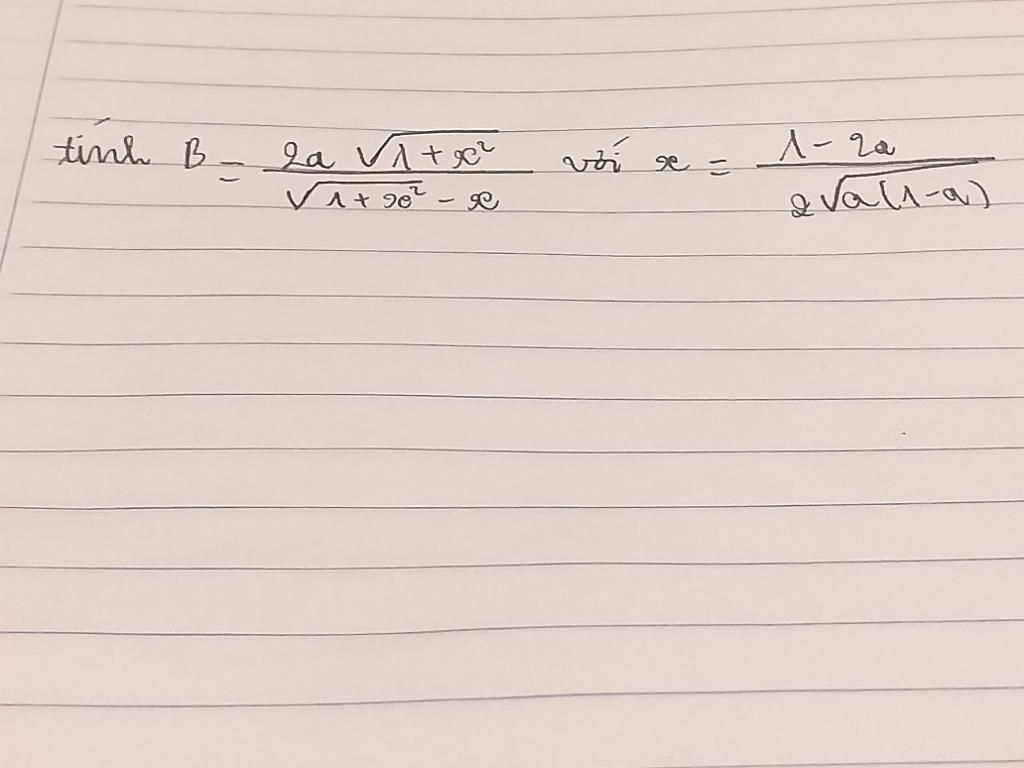 tính B = \frac{2a \sqrt{1+x^2}}{\sqrt{1+x^2} - x} với x = \frac{1-2a}{2\sqrt{a(1-a)}}